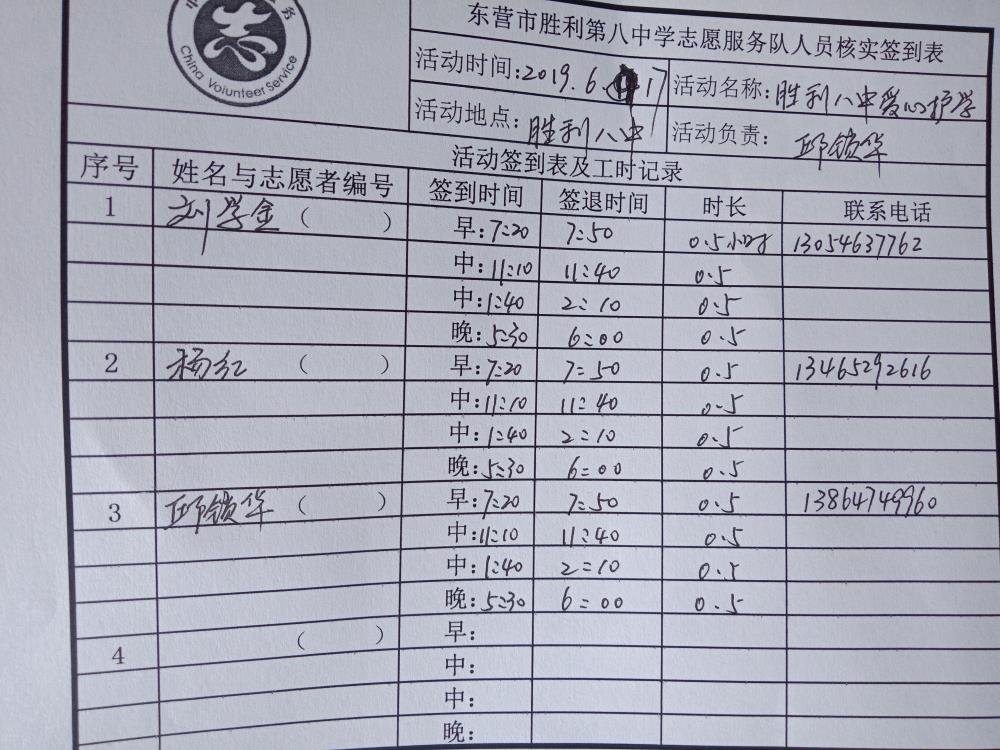 China Volunteer Service
东营市胜利第八中学志愿服务队人员核实签到表
活动时间:2019.6.17 活动名称:胜利八中爱心护学
活动地点:胜利八中 活动负责:邱锁华
活动签到表及工时记录
序号 姓名与志愿者编号 签到时间 签退时间 时长 联系电话
1 刘学金( ) 早:7:20 7:50 0.5小时 13054637762
中:11:10 11:40 0.5
中:1:40 2:10 0.5
晚:5:30 6:00 0.5
2 杨红 ( ) 早:7:20 7:50 0.5 13465292616
中:11:10 11:40 0.5
中:1:40 2:10 0.5
晚:5:30 6:00 0.5
3 邱锁华( ) 早:7:20 7:50 0.5 13864749960
中:11:10 11:40 0.5
中:1:40 2:10 0.5
晚:5:30 6:00 0.5
4 ( ) 早:
中:
中:
晚: